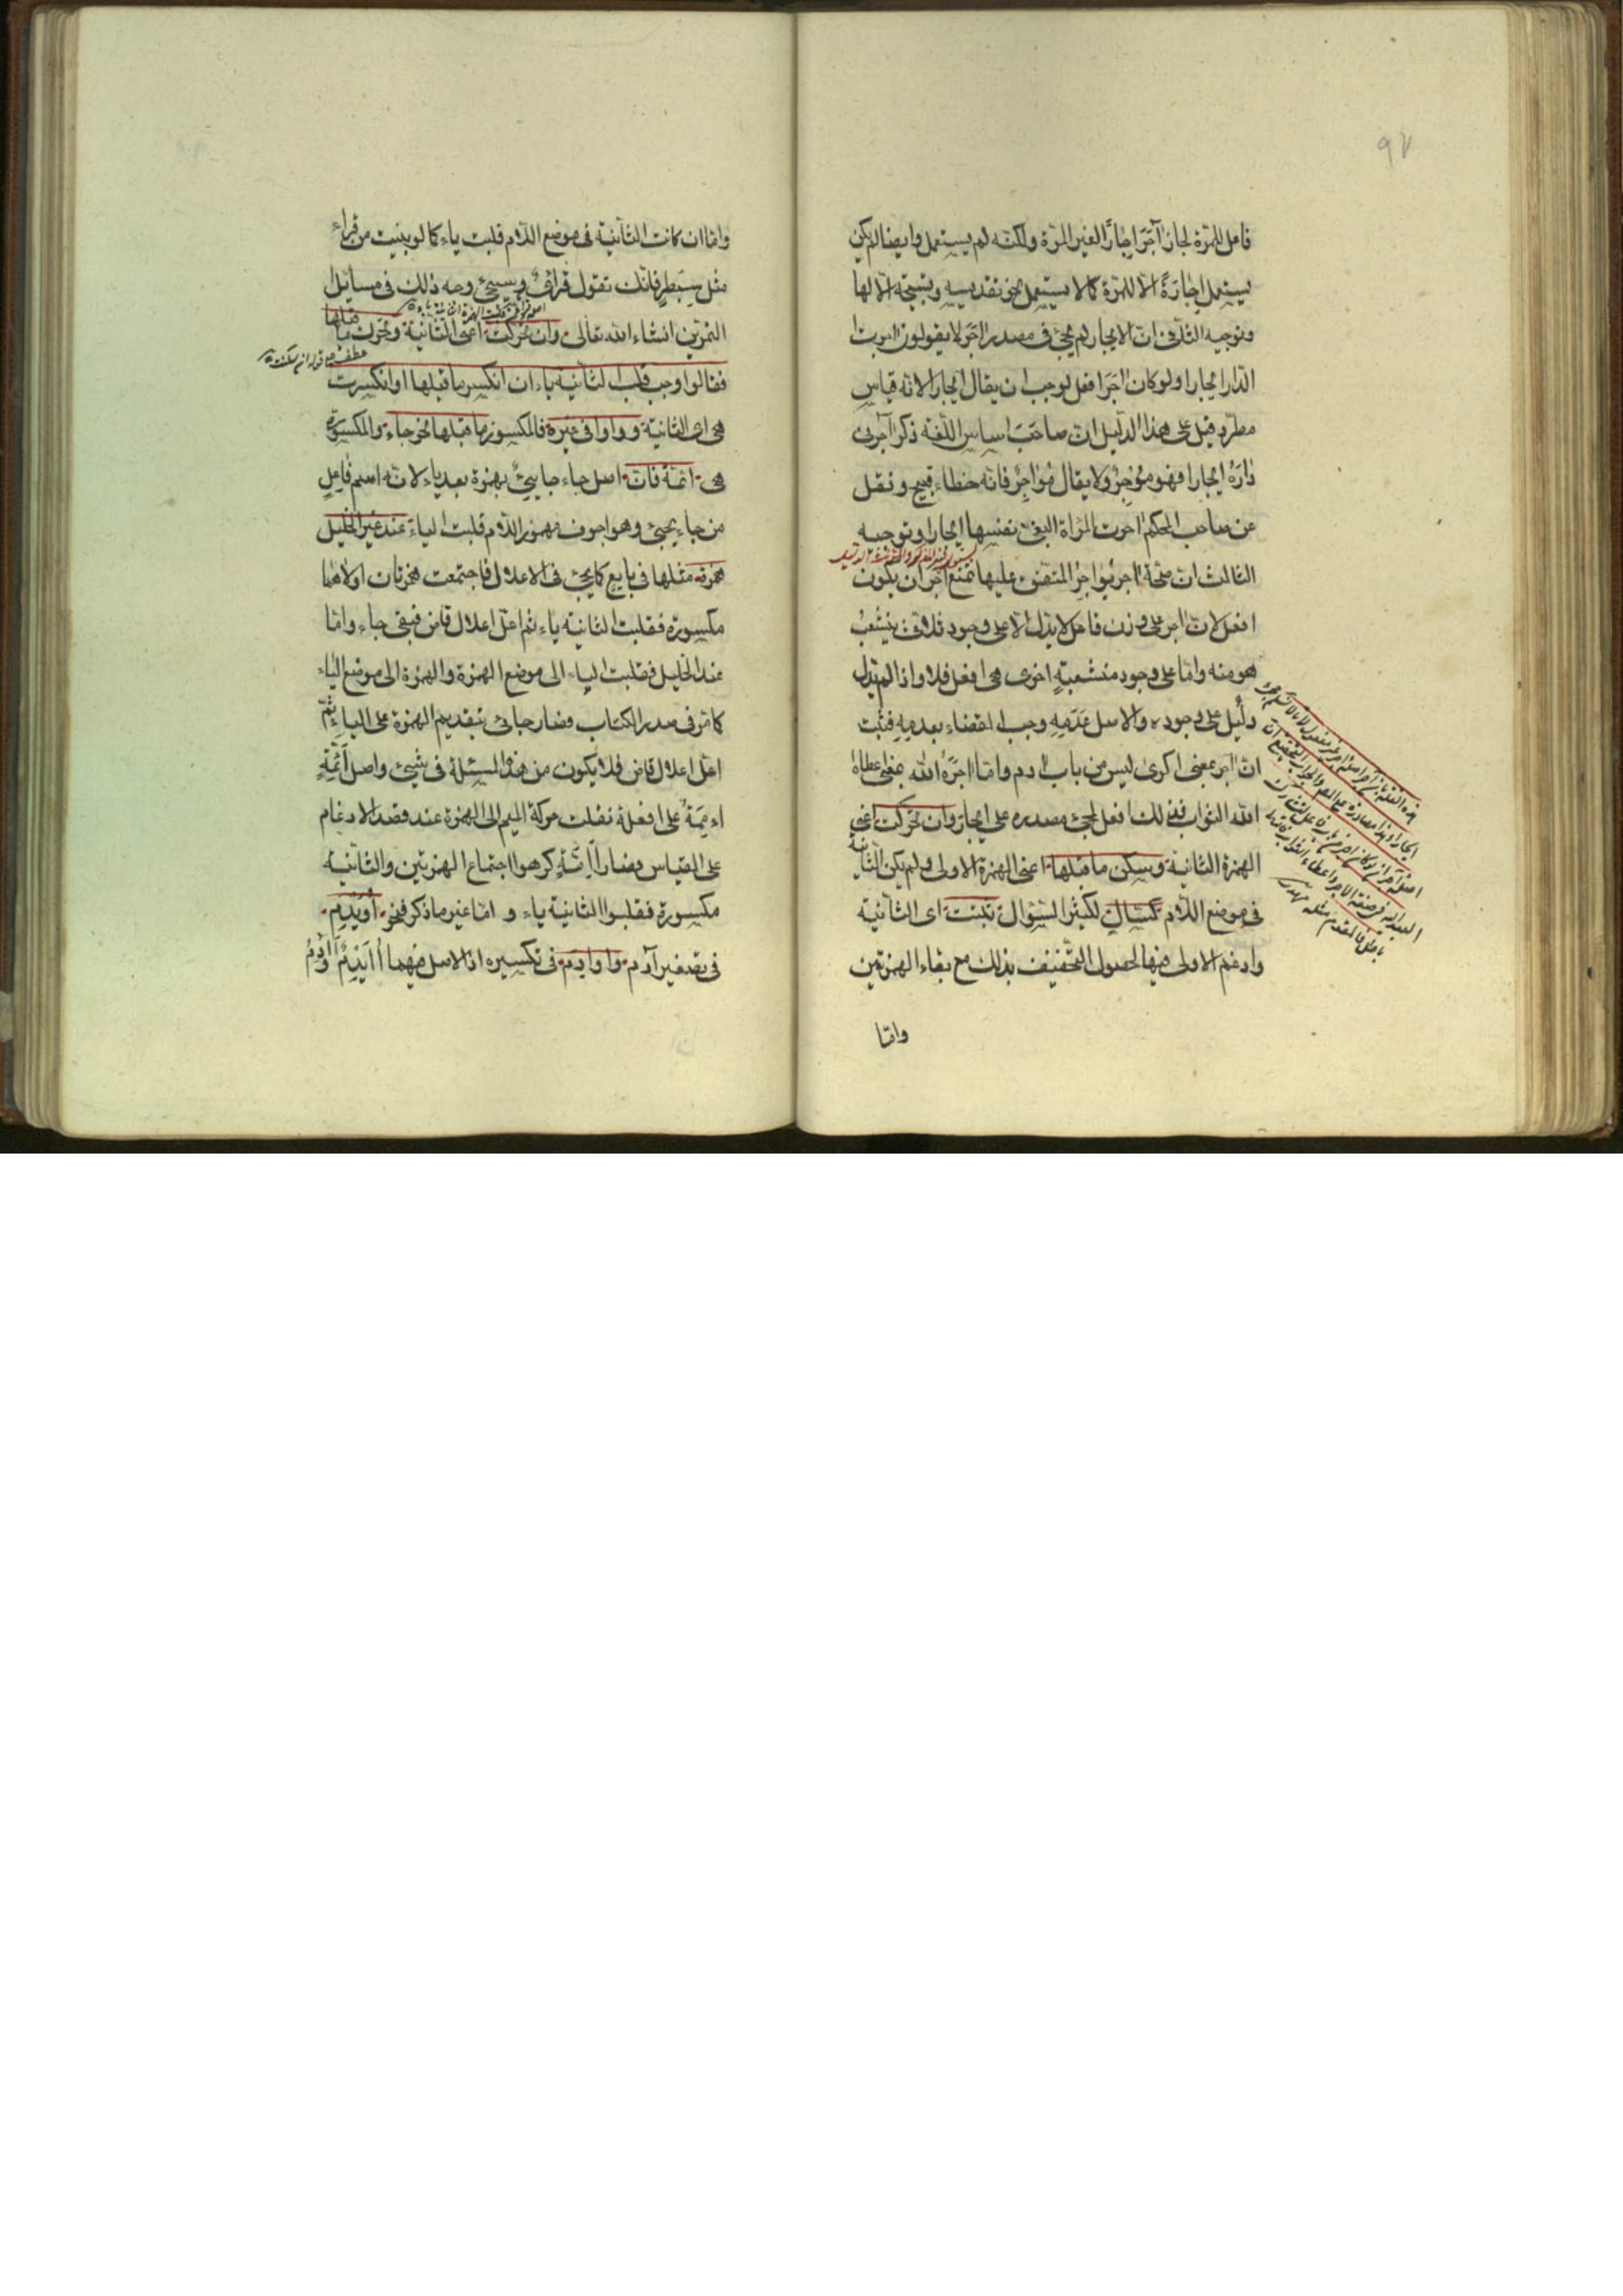 ٩٧
فاعل للمرة لجاز آجَرَ اِجارًا لغير المرّة ولكنّه لم يستعمل وايضا لم يكن
يستعمل اِجارَةً الّا للمرّة كما لا يستعمل نحو تقديسه وتسبيحة الّا لها
وتوجيه الثانى انّ الايجار لم يجئ فى مصدر آجَرَ لا يقولون اجرت
الدّار ايجارا ولو كان اجَرَ افعل لوجب ان يقال ايجارا لانّه قياس
مطّرد قيل على هذا الدّليل انّ صاحبَ اساس اللّغة ذكر آجرنى
دارَهُ ايجارا فهو مُؤجِرٌ ولا يقال مُؤاجِرٌ فانّه خطاء قبيح ونقل
عن صاحب المحكم اجرت المراة البغىّ نفسها ايجارا وتوجيه
الثالث انّ صحّة اجر يُؤاجِرُ المتّفق عليها تمنع آجرَ ان يكون
افعل لانّ اجر على وزن فاعل لا يدلّ الّا على وجود ثلاثىّ ينشعب
هو منه وامّا على وجود منشعبةٍ اخرى هى افعل فلا واذا لم يدل
دليل على وجوده والاصل عَدَمِه وجب القضاء بعدمِهِ فثبت
انّ اجر بمعنى اكرى ليس من باب ادم وامّا اجَرَهُ اللّه بمعنى اعطاهُ
اللّه الثواب فذلك افعل لمجئ مصدره على ايجار وان تحرّكت اعنى
الهمزة الثانية وسكن ما قبلها اعنى الهمزة الاولى ولم يكن الثانية
فى موضع اللّام كسَأّالٍ لكثير السّؤال ثبتت اى الثانية
وادغم الاولى فيها لحصول التّخفيف بذلك مع بقاء الهمزتين
وامّا
وامّا ان كانت الثانية فى موضع اللّام قلبت ياء كما لو بنيت من قراء
مثل سِبَطرٍ فانّك تقول قرائىٌ وسيجئ وجه ذلك فى مسائل
التمرين انشاء اللّه تعالى وان تحرّكت اعنى الثّانية وتحرّك ما قبلها
عطف على قوله ان سكنت
فقالوا وجب قلب الثانية ياء ان انكسر ما قبلها او انكسرت
هى اى الثانية وواوا فى غيره فالمكسور ما قبلها نحو جاء والمكسورة
هى ائمّة فانّ اصل جاء جايئٌ بهمزة بعد ياء لانّه اسم فاعِلٍ
من جاء يجيئ وهو اجوف مهموز اللّام قلبت الياء عند غير الخليل
همزة مثلها فى بايع كما يجئ فى الاعلال فاجتمعت همزتان اولاهما
مكسورة فقلبت الثانية ياء ثم اعلّ اعلال قاض فبقى جاء وامّا
عند الخليل فقلبت الياء الى موضع الهمزة والهمزة الى موضع الياء
كما مرّ فى صدر الكتاب وصار جائى بتقديم الهمزة على الياء ثمّ
اعلّ اعلال قاض فلا يكون من هذه المسئلة فى شيئ واصل اَئمّةٍ
اءمِمَةٌ على افعلة نقلت حركة الميم الى الهمزة عند قصد الادغام
على القياس وصار اَاِمّةٍ كرهوا اجتماع الهمزتين والثّانية
مكسورة فقلبوا الثانية ياء و امّا غير ما ذكر فنحو اُوَيدِمِ
فى تصغير آدم واوادم فى تكسيره اذ الاصل فيهما اُاَيدِمٌ وَاَادِمُ